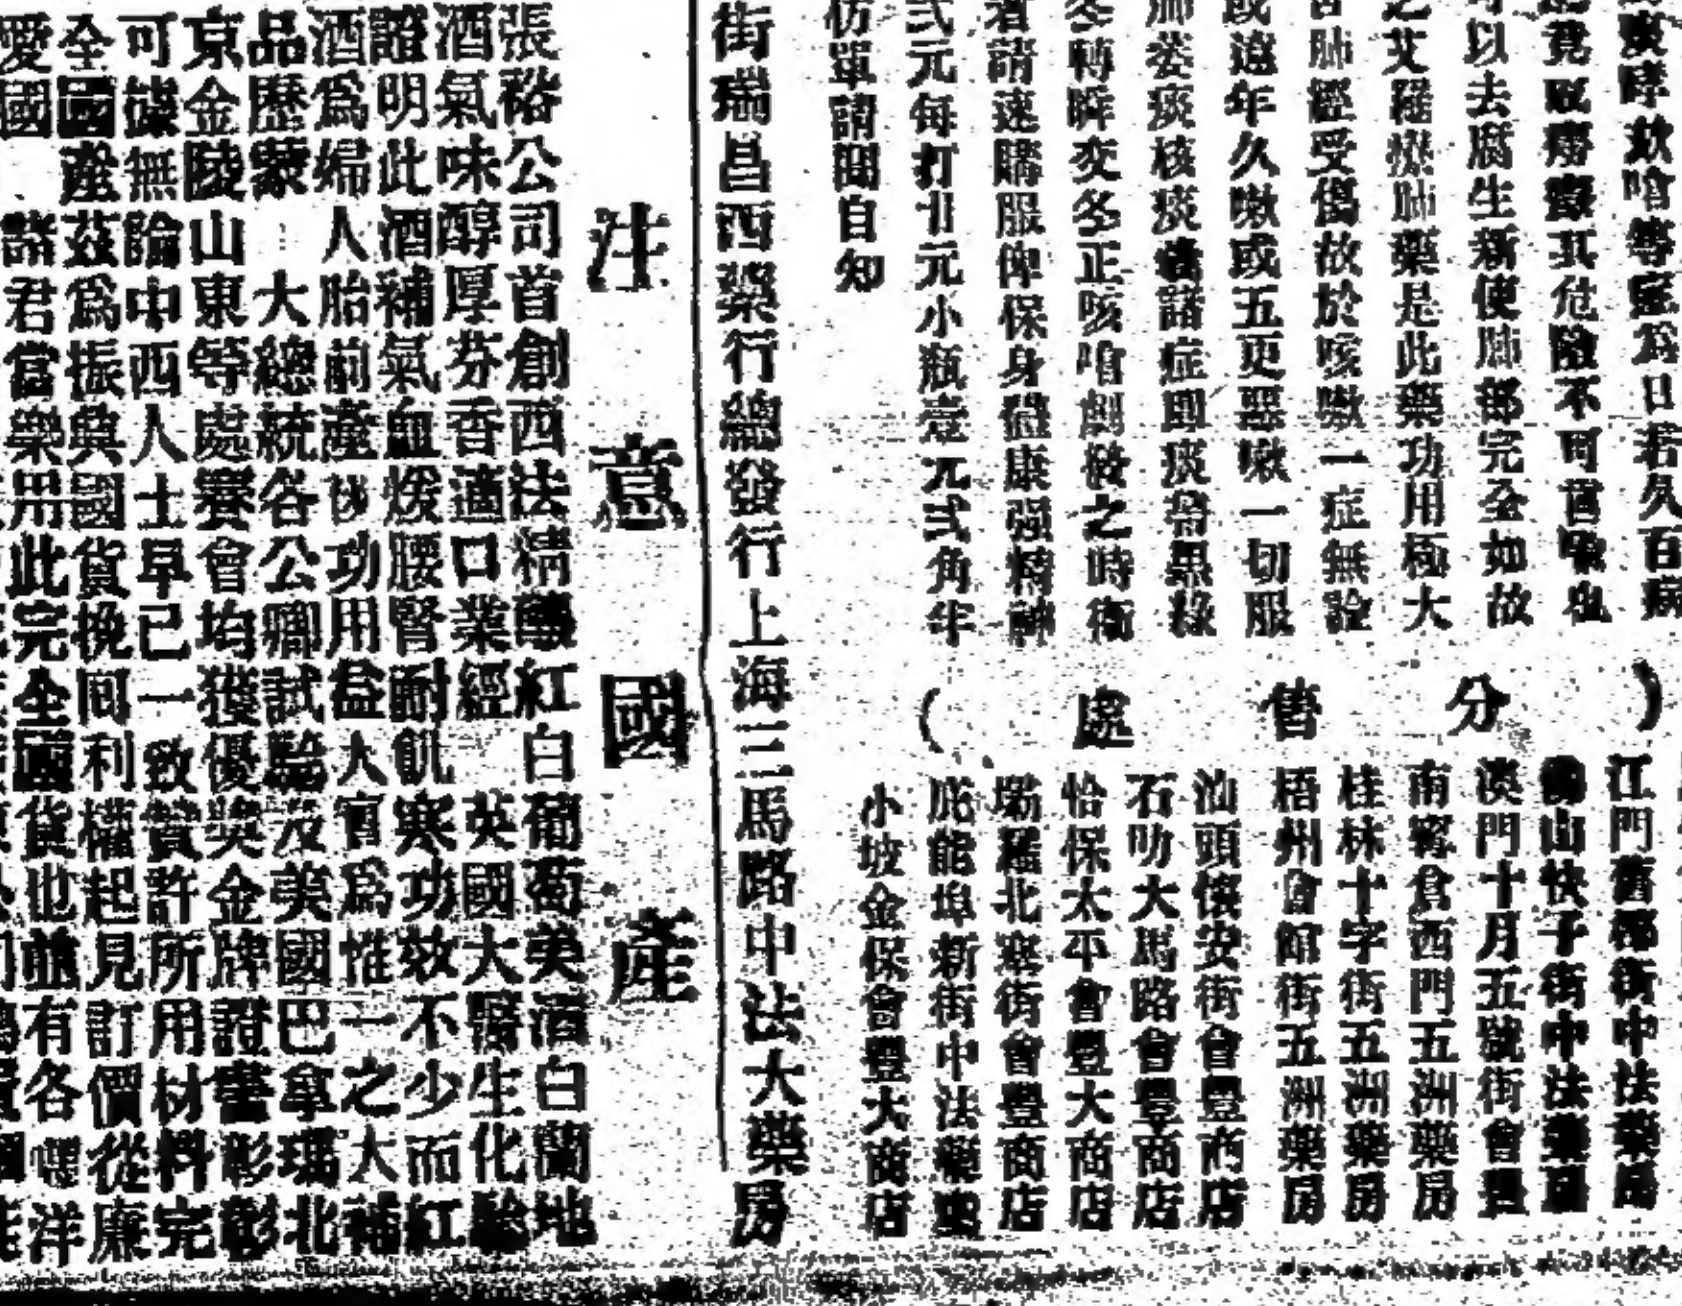 痰哮欬嗆等症爲日若久百病
竟致癆瘵其危險不可言喻也
可以去腐生新使肺部完全如故
之艾羅療肺藥是此藥功用極大
肺經受傷故於咳嗽一症無論
或遠年久嗽或五更惡嗽一切服
肺萎痰核痰諸症即痰帶黑綠
冬轉瞬交冬正咳嗆劇發之時衛
者請速購服俾保身體康强精神
弍元每打廿元小瓶壹元弍角年
仿單請閱自知
(分售處)
江門舊街中法藥房
佛山快子街中法藥房
澳門十月五號街會豐
南寗倉西門五洲藥房
桂林十字街五洲藥房
梧州會館街五洲藥房
汕頭懷安街會豐商店
石叻大馬路會豐商店
恰保太平會豐大商店
瑞羅北塞街會豐商店
庇能埠新街中法藥
小坡金保會豐大商店
街瑞昌西藥行總發行上海三馬路中法大藥房
注意國產
張裕公司首創西法精釀紅白葡萄美酒白蘭地
酒氣味醇厚芬香適口業經 英國大醫生化驗
證明此酒補氣血煖腰腎耐飢寒功效不少而紅
酒爲婦人胎前產後功用益大實爲惟一之大補
品歷蒙 大總統各公卿試驗及美國巴拿瑪北
京金陵山東等處賽會均獲優奬金牌證書彰彰
可據無論中西人士早已一致贊許所用材料完
全國產茲爲振興國貨挽回利權起見訂價從廉
愛國 諸君當樂用此完全國貨也並有各種洋